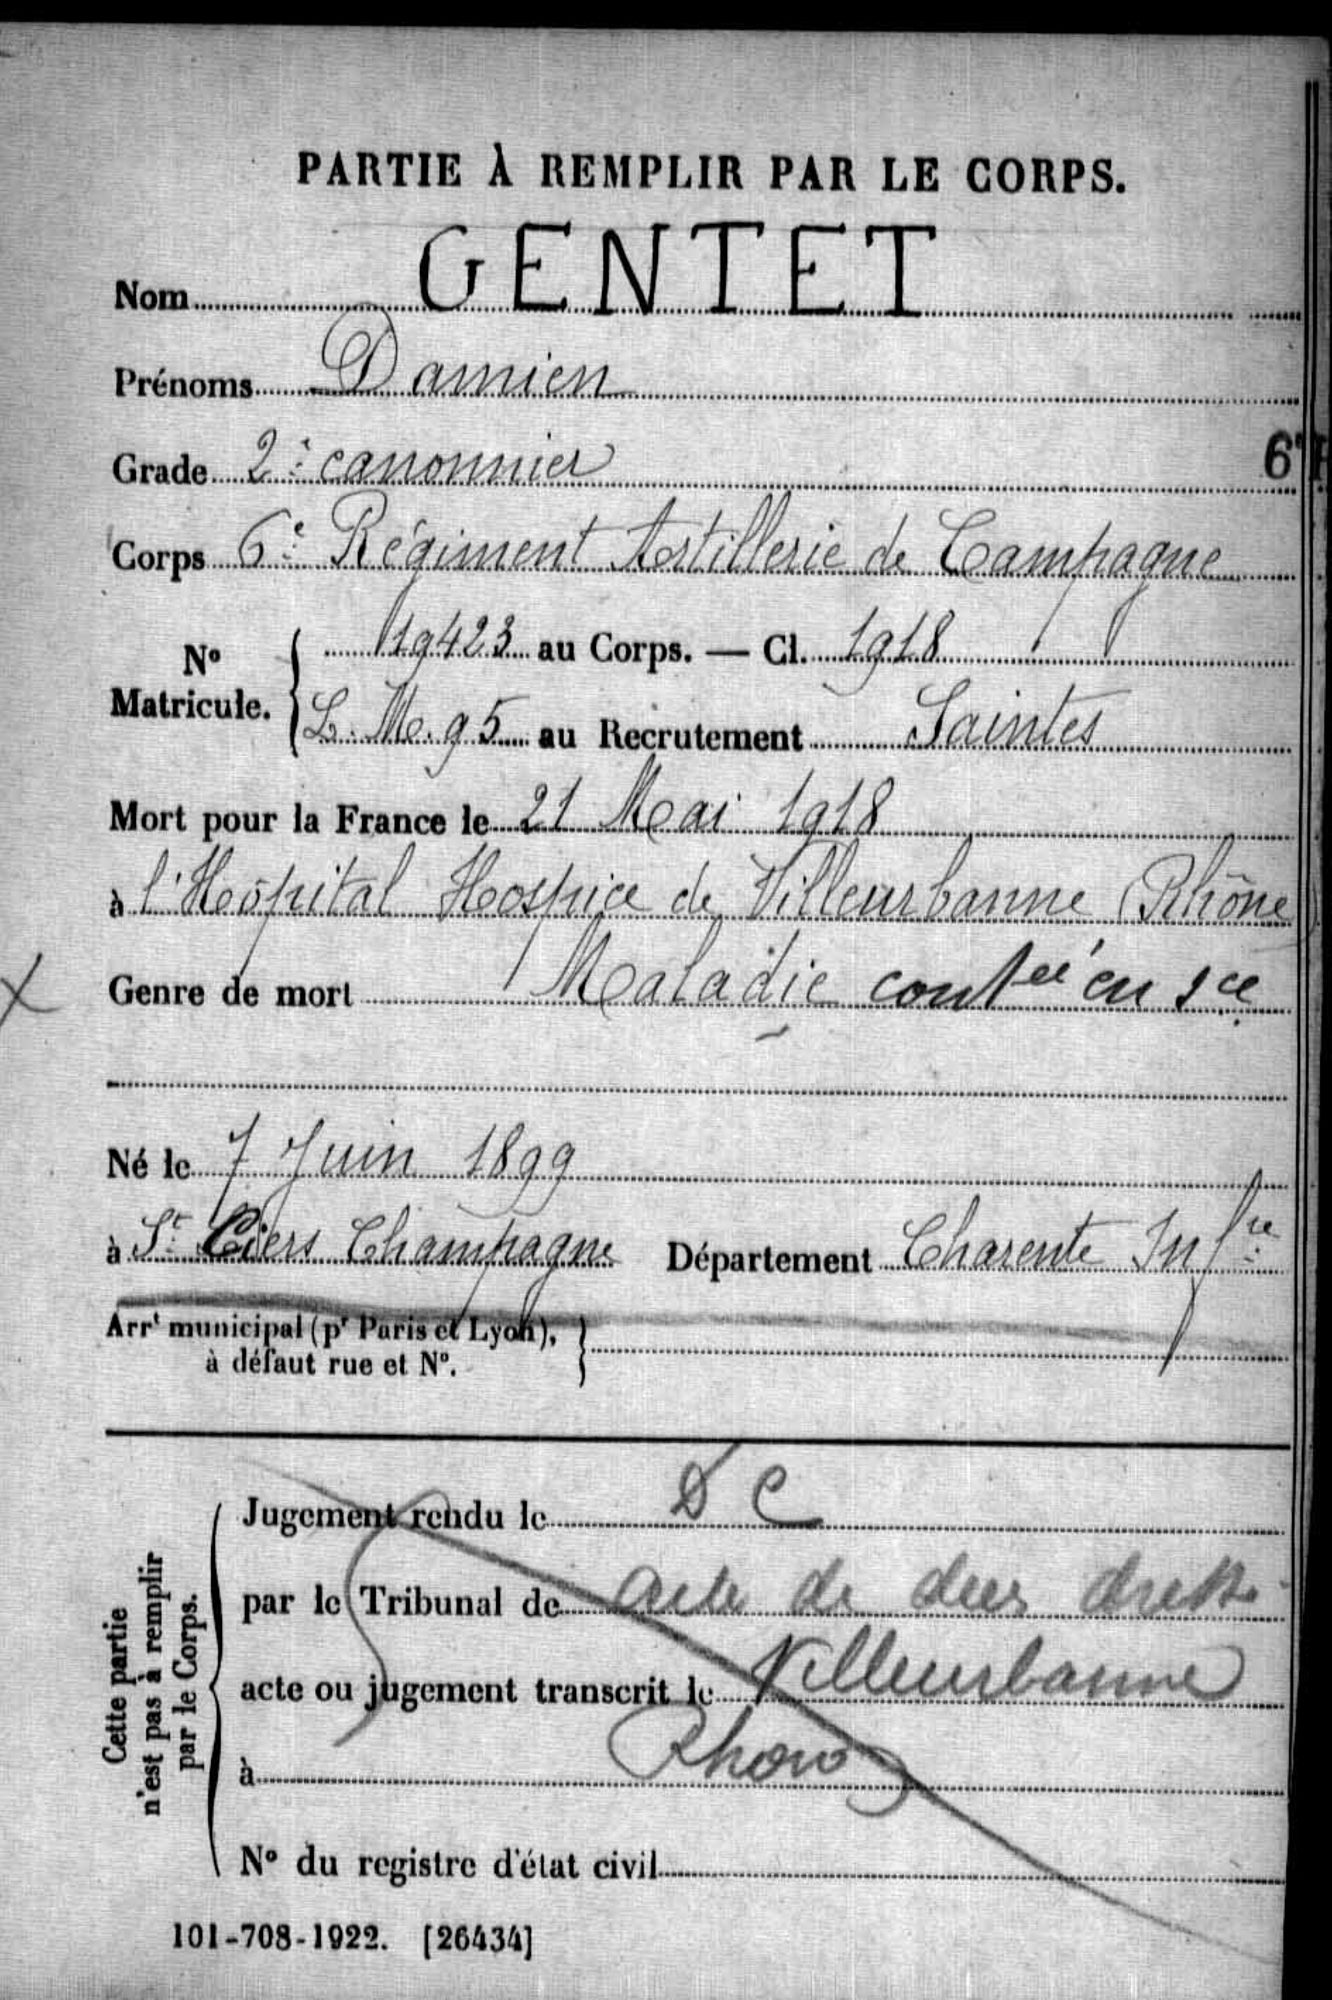 PARTIE À REMPLIR PAR LE CORPS.
Nom GENTET
Prénoms Damien
Grade 2e canonnier
Corps 6e Régiment Artillerie de Campagne
6e
19423 au Corps. — Cl. 1918
N° Matricule.
L. M. 95 au Recrutement Saintes
Mort pour la France le 21 Mai 1918
à l'Hôpital Hospice de Villeurbanne (Rhône
Genre de mort Maladie contée en sce
Né le 7 Juin 1899
à St Ciers Champagne Département Charente Infre
Arrt municipal (pr Paris et Lyon),
à défaut rue et N°.
Cette partie
n'est pas à remplir
par le Corps.
Jugement rendu le D C
par le Tribunal de acte de
acte ou jugement transcrit le Villeurbanne
à Rhone
N° du registre d'état civil
101-708-1922. [26434]